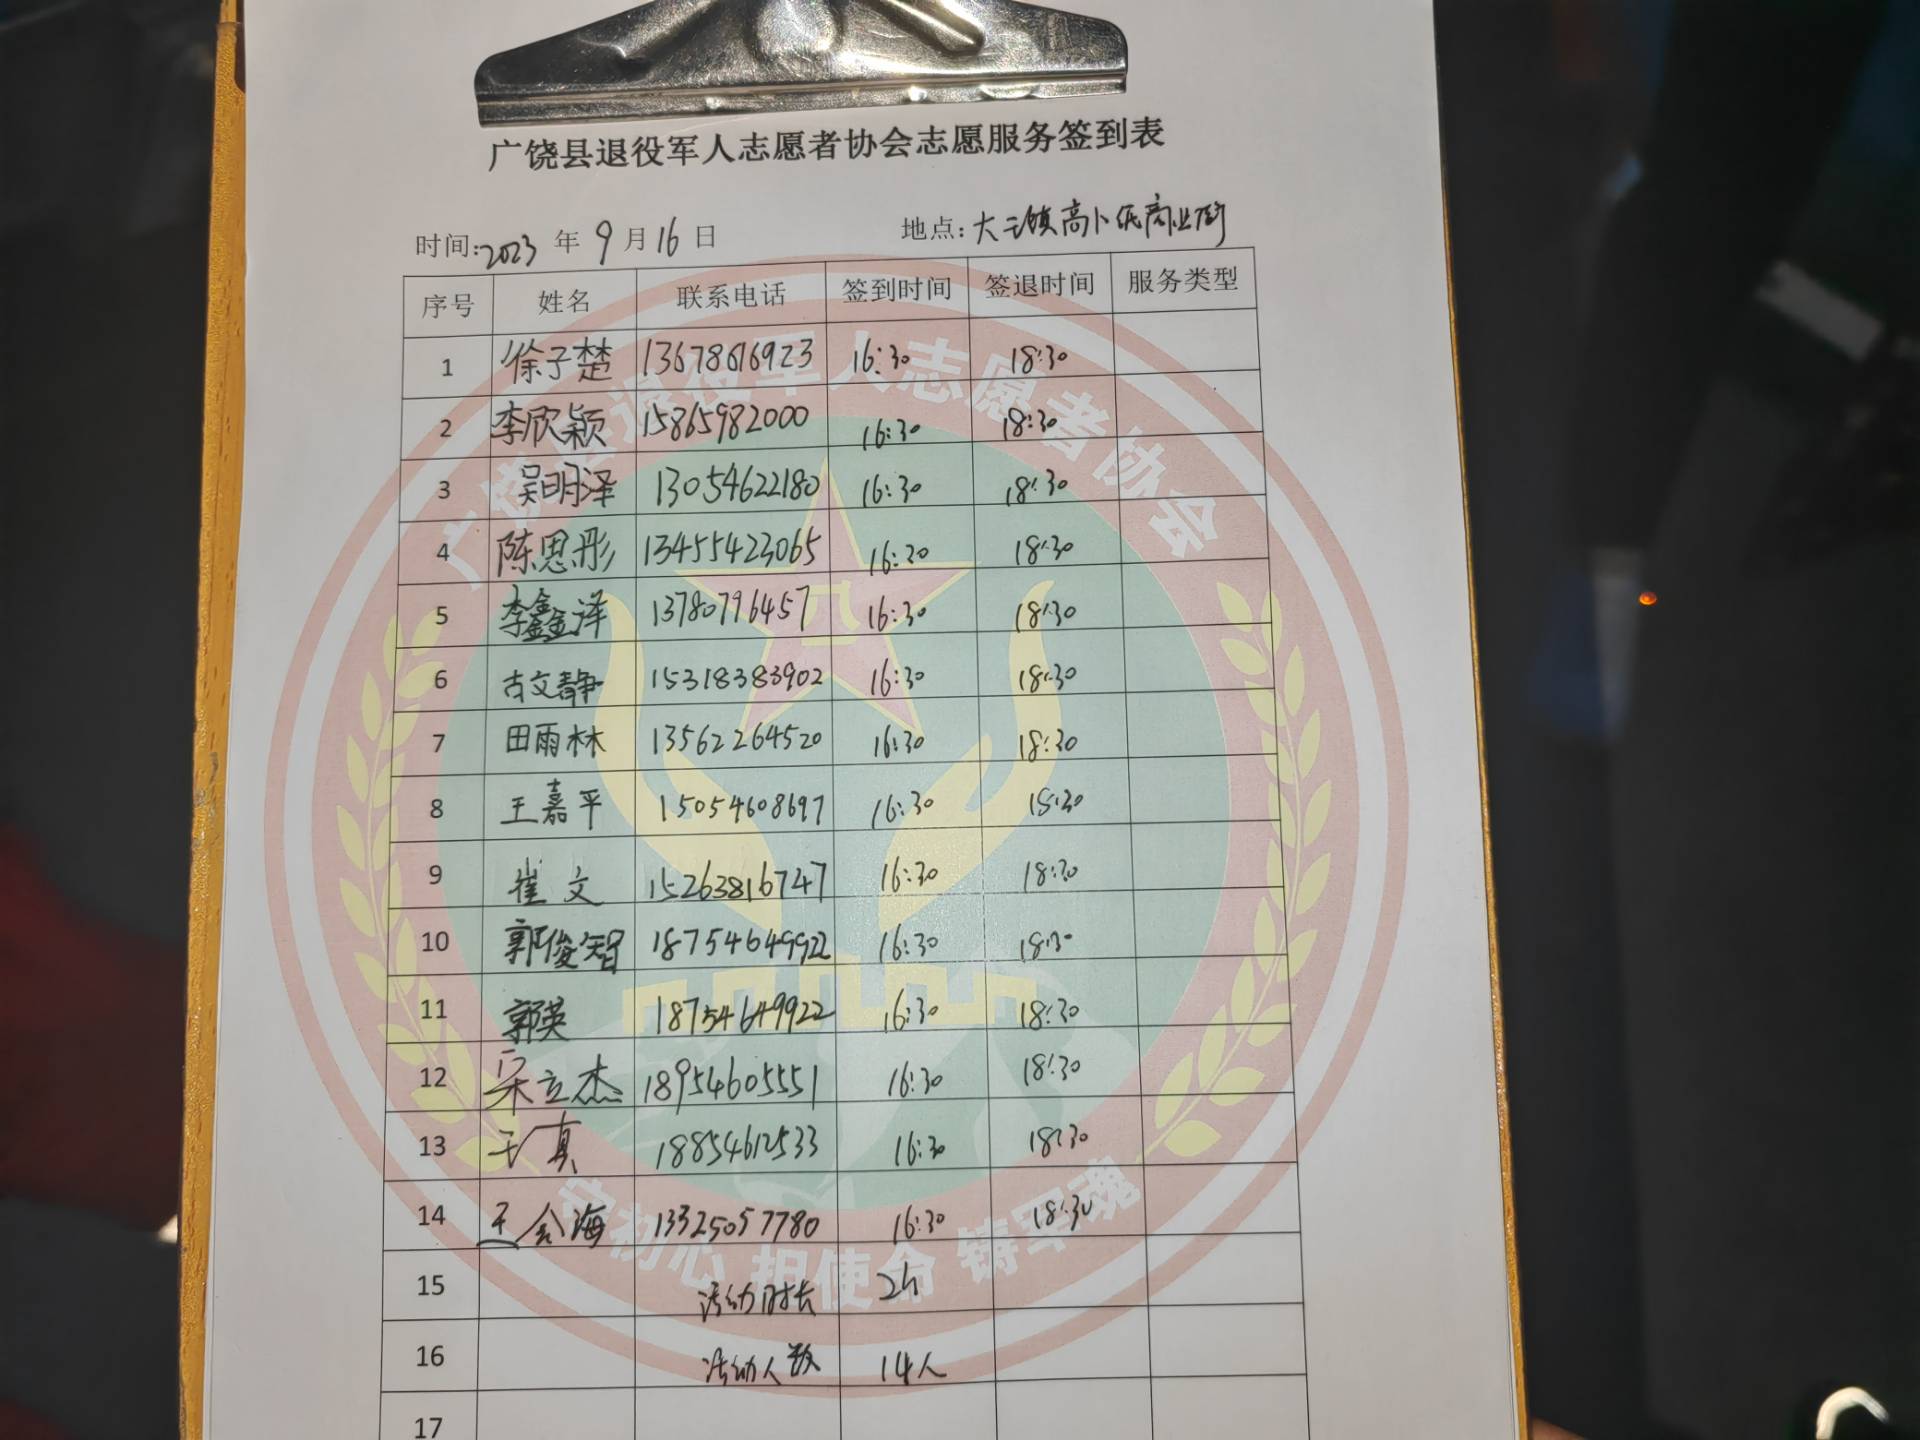 广饶县退役军人志愿者协会志愿服务签到表
时间:2023 年 9 月 16 日 地点:大王镇高卜纸商业街
序号 姓名 联系电话 签到时间 签退时间 服务类型
1 徐子楚 13678616923 16:30 18:30
2 李欣颖 15865982000 16:30 18:30
3 吴明泽 13054622180 16:30 18:30
4 陈思彤 13455423065 16:30 18:30
5 李鑫泽 13780796457 16:30 18:30
6 古文静 15318383902 16:30 18:30
7 田雨林 13562264520 16:30 18:30
8 王嘉平 15054608697 16:30 18:30
9 崔文 15263816747 16:30 18:30
10 郭俊智 18754649922 16:30 18:30
11 郭英 18754649922 16:30 18:30
12 宋立杰 18954605551 16:30 18:30
13 于真 18854612533 16:30 18:30
14 王金海 13325057780 16:30 18:30
15 活动时长 2h
16 活动人数 14人
17
广饶县退役军人志愿者协会
守初心 担使命 铸军魂